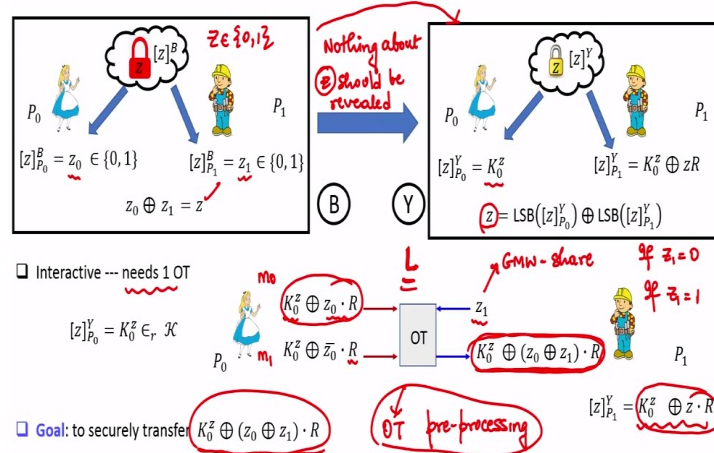 [z]^B
z∈{0,1}
P_0
P_1
[z]^B_{P_0} = z_0 ∈ {0,1}
[z]^B_{P_1} = z_1 ∈ {0,1}
z_0 ⊕ z_1 = z
Nothing about
z should be
revealed
B
Y
z [z]^Y
P_0
P_1
[z]^Y_{P_0} = K_0^z
[z]^Y_{P_1} = K_0^z ⊕ zR
z = LSB([z]^Y_{P_0}) ⊕ LSB([z]^Y_{P_1})
Interactive --- needs 1 OT
L
GMW-share
if z_1=0
if z_1=1
[z]^Y_{P_0} = K_0^z ∈_r 𝒦
P_0
m_0 K_0^z ⊕ z_0 · R
m_1 K_0^z ⊕ \bar{z_0} · R
OT
z_1
K_0^z ⊕ (z_0 ⊕ z_1) · R
P_1
[z]^Y_{P_1} = K_0^z ⊕ z · R
Goal: to securely transfer K_0^z ⊕ (z_0 ⊕ z_1) · R
OT pre-processing